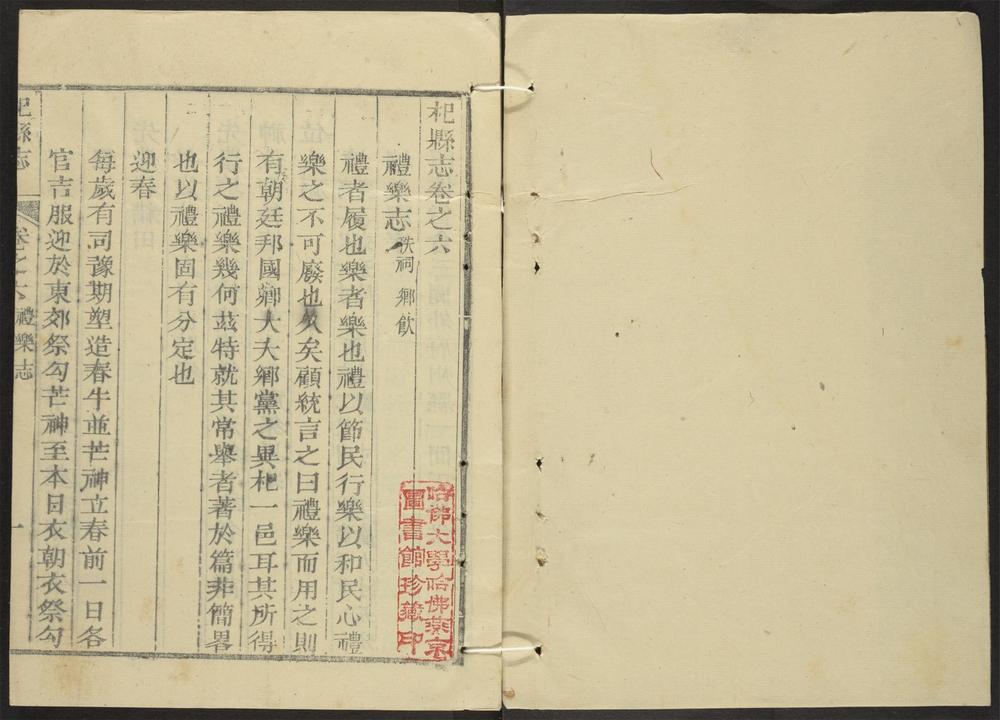 杞縣志卷之六
禮樂志 秩祠 鄉飲
禮者履也樂者樂也禮以節民行樂以和民心禮
樂之不可廢也久矣顧統言之曰禮樂而用之則
有朝廷邦國鄉大夫鄉黨之異杞一邑耳其所得
行之禮樂幾何茲特就其常舉者著於篇非簡畧
也以禮樂固有分定也
迎春
每歲有司豫期塑造春牛並芒神立春前一日各
官吉服迎於東郊祭勾芒神至本日衣朝衣祭勾
杞縣志
卷之六 禮樂志
一
哈佛大學哈佛燕京
圖書館珍藏印